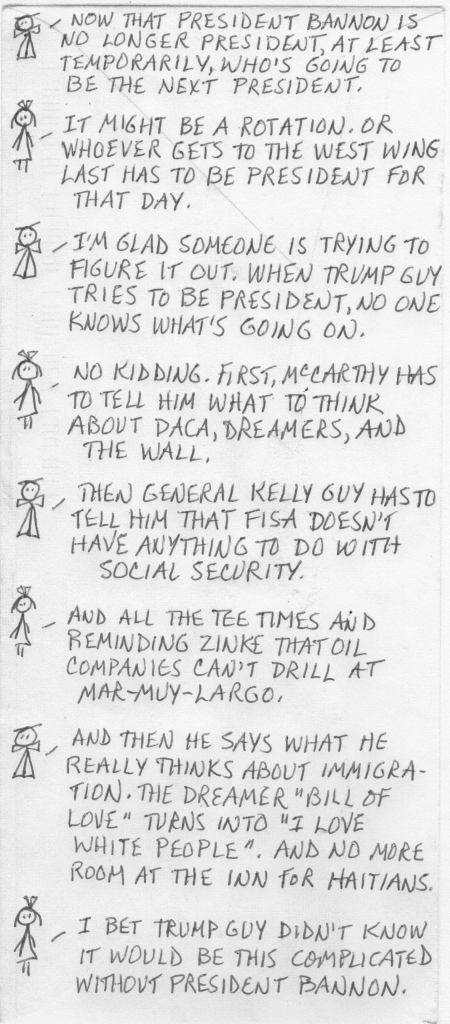 NOW THAT PRESIDENT BANNON IS
NO LONGER PRESIDENT, AT LEAST
TEMPORARILY, WHO'S GOING TO
BE THE NEXT PRESIDENT.
IT MIGHT BE A ROTATION. OR
WHOEVER GETS TO THE WEST WING
LAST HAS TO BE PRESIDENT FOR
THAT DAY.
I'M GLAD SOMEONE IS TRYING TO
FIGURE IT OUT. WHEN TRUMP GUY
TRIES TO BE PRESIDENT, NO ONE
KNOWS WHAT'S GOING ON.
NO KIDDING. FIRST, MCCARTHY HAS
TO TELL HIM WHAT TO THINK
ABOUT DACA, DREAMERS, AND
THE WALL.
THEN GENERAL KELLY GUY HAS TO
TELL HIM THAT FISA DOESN'T
HAVE ANYTHING TO DO WITH
SOCIAL SECURITY.
AND ALL THE TEE TIMES AND
REMINDING ZINKE THAT OIL
COMPANIES CAN'T DRILL AT
MAR-MUY-LARGO.
AND THEN HE SAYS WHAT HE
REALLY THINKS ABOUT IMMIGRA-
TION. THE DREAMER "BILL OF
LOVE" TURNS INTO "I LOVE
WHITE PEOPLE". AND NO MORE
ROOM AT THE INN FOR HAITIANS.
I BET TRUMP GUY DIDN'T KNOW
IT WOULD BE THIS COMPLICATED
WITHOUT PRESIDENT BANNON.